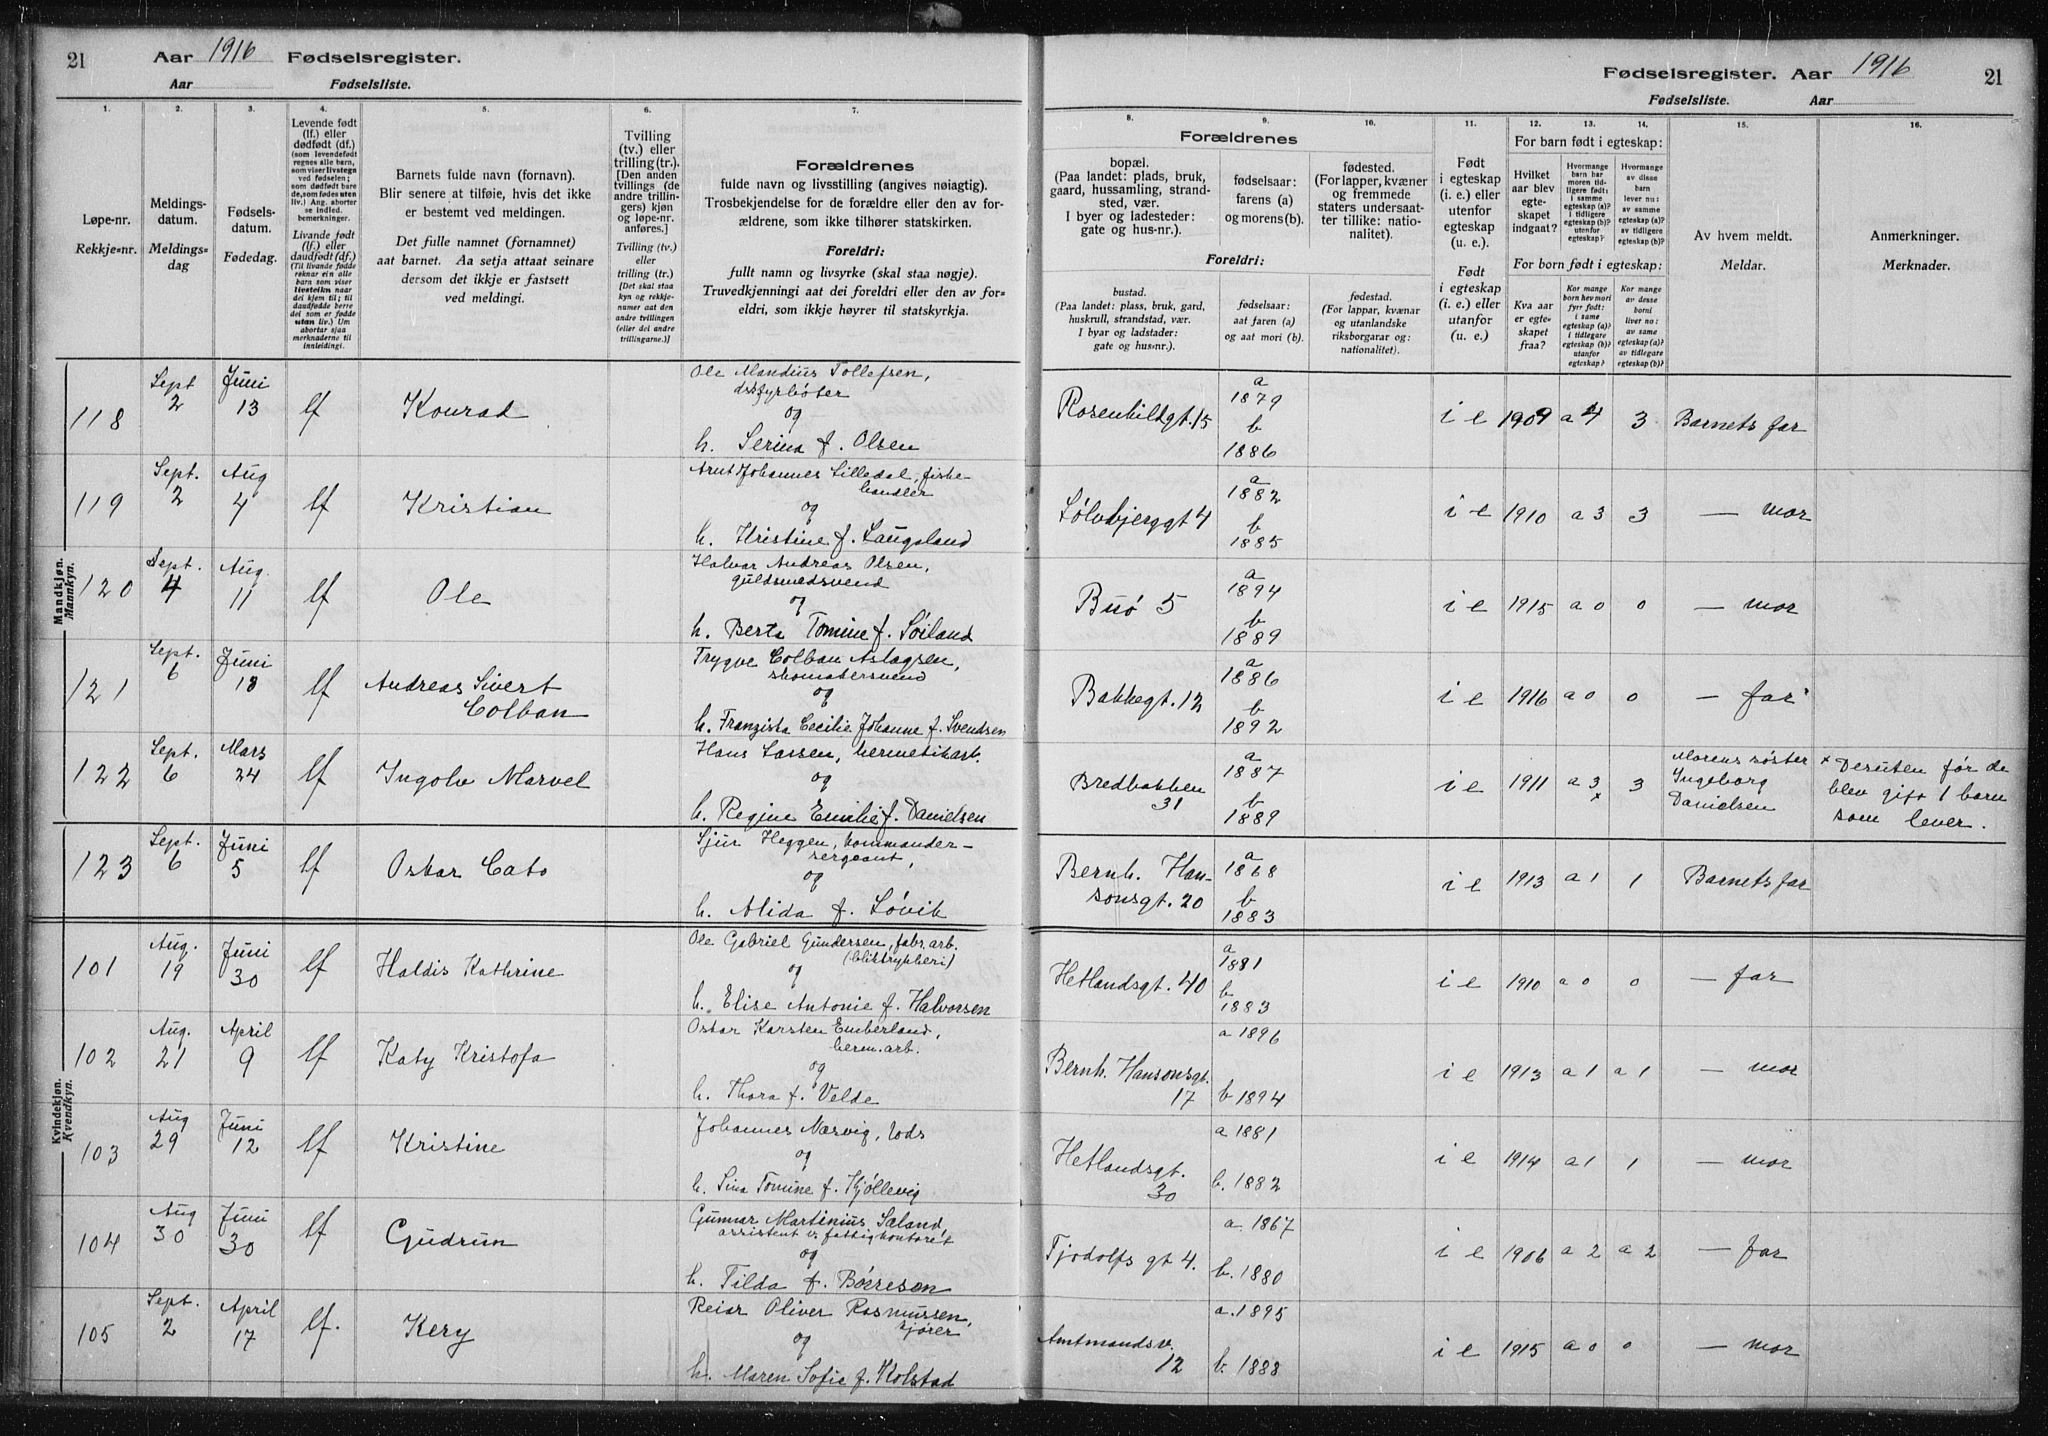 21
Aar 1916 Fødselsregister.
Aar Fødselsliste.
1.
Løpe-nr.
Rekkje-nr.
2.
Meldings-
datum.
Meldings-
dag
3.
Fødsels-
datum.
Fødedag.
4.
Levende født
(lf.) eller
dødfødt (df.)
(som levendefødt
regnes alle barn,
som viser livstegn
ved fødselen;
som dødfødt bare
de, som fødes uten
liv.) Ang. aborter
se indled.
bemerkninger.
Livande født
(lf.) eller
daudfødt (df.)
(Til livande fødde
reknar ein alle
barn som viser
livsteikn naar
dei kjem til; til
daudfødde berre
dei som er fødde
utan liv.) Um
abortar sjaa
merknaderne til
innleidingi.
5.
Barnets fulde navn (fornavn).
Blir senere at tilføie, hvis det ikke
er bestemt ved meldingen.
Det fulle namnet (fornamnet)
aat barnet. Aa setja attaat seinare
dersom det ikkje er fastsett
ved meldingi.
6.
Tvilling
(tv.) eller
trilling (tr.).
[Den anden
tvillings (de
andre trillin-
gers) kjøn
og løpe-nr.
anføres.]
Tvilling (tv.)
eller
trilling (tr.)
[Det skal staa
kyn og rekkje-
numer aat den
andre tvillingen
(eller dei andre
trillingarne.)]
7.
Forældrenes
fulde navn og livsstilling (angives nøiagtig).
Trosbekjendelse for de forældre eller den av for-
ældrene, som ikke tilhører statskirken.
Foreldri:
fullt namn og livsyrke (skal staa nøgje).
Truvedkjenningi aat dei foreldri eller den av for-
eldri, som ikkje høyrer til statskyrkja.
Fødselsregister. Aar 1916 21
Fødselsliste. Aar
Forældrenes
8.
bopæl.
(Paa landet: plads, bruk,
gaard, hussamling, strand-
sted, vær.
I byer og ladesteder:
gate og hus-nr.).
9.
fødselsaar:
farens (a)
og morens (b).
10.
fødested.
(For lapper, kvæner
og fremmede
staters undersaat-
ter tillike: natio-
nalitet).
Foreldri:
bustad.
(Paa landet: plass, bruk, gard,
huskrull, strandstad, vær.
I byar og ladstader:
gate og hus-nr.).
fødselsaar:
aat faren (a)
og aat mori (b).
fødestad.
(For lappar, kvænar
og utanlandske
riksborgarar og:
nationalitet).
11.
Født
i egteskap
(i. e.) eller
utenfor
egteskap
(u. e.).
Født
i egteskap
(i. e.) eller
utanfor
(u. e.).
For barn født i egteskap:
12.
Hvilket
aar blev
egte-
skapet
indgaat?
13.
Hvormange
barn har
moren tid-
ligere født:
i samme
egteskap (a)?
i tidligere
egteskap (b)?
utenfor
egteskap?
14.
Hvormange
av disse
barn
lever nu:
av samme
egteskap (a)?
av tidligere
egteskap (b)?
For born født i egteskap:
Kva aar
er egte-
skapet
fraa?
Kor mange
born hev mori
fyrr født:
i same
egteskap (a)?
i tidlegare
egteskap (b)?
utanfor
egteskap?
Kor mange
av desse
borni
liver no:
av same
egteskap (a)?
av tidlegare
egteskap (b)?
15.
Av hvem meldt.
Meldar.
16.
Anmerkninger.
Merknader.
Mandkjøn.
Mannkyn.
118 Sept 2 Juni 13 lf Konrad
Ole Mandius Tollefsen,
fyrbøter
og
h. Serina f. Olsen
Rosenkildgt. 15 a 1879 b 1886 i e 1909 a 4 3 Barnets far
119 Sept. 2 Aug 4 lf Kristian
Arnt Johannes Lilledal, fiske-
handler
og
h. Kristine f. Laugaland
Sølvbjerggt 4 a 1882 b 1885 i e 1910 a 3 3 — mor
120 Sept. 4 Aug. 11 lf Ole
Halvar Andreas Olsen,
guldsmedsvend
og
h. Berta Tomine f. Søiland
Buø 5 a 1894 b 1889 i e 1915 a 0 0 — mor
121 Sept. 6 Juni 13 lf Andreas Sivert
Colban
Trygve Colban Aslagsen,
skomakersvend
og
h. Franziska Cecilie Johanne f. Svendsen
Bakkegt. 12 a 1886 b 1892 i e 1916 a 0 0 — far
122 Sept. 6 Mars 24 lf Ingolv Marvel
Hans Larsen, hermetikarb.
og
h. Regine Emilie f. Danielsen
Bredbakken
31 a 1887 b 1889 i e 1911 a 3 x 3 Morens søster
Ingeborg
Danielsen
x Desuten før de
blev gift 1 barn
som lever.
123 Sept. 6 Juni 5 lf Oskar Cato
Sjur Heggen, kommander-
sergeant,
og
h. Alida f. Løvik
Bernh. Han-
sonsgt. 20 a 1868 b 1883 i e 1913 a 1 1 Barnets far
Kvindekjøn.
Kvendkyn.
101 Aug. 19 Juni 30 lf Haldis Kathrine
Ole Gabriel Gundersen, fabr. arb.
(bliktrykkeri)
og
h. Elise Antonie f. Halvorsen
Hetlandsgt. 40 a 1881 b. 1883 i e 1910 a 0 0 — far
102 Aug. 21 April 9 lf Katy Kristofa
Oskar Karsten Emberland,
herm. arb.
og
h. Thora f. Velde
Bernh. Hansonsgt.
17 a 1896 b 1894 i e 1913 a 1 a 1 — mor
103 Aug 29 Juni 12 lf Kristine
Johannes Næsvig, lods
og
h. Sina Tomine f. Kjøllevig
Hetlandsgt.
30 a 1881 b. 1882 i e 1914 a 1 1 — mor
104 Aug 30 Juni 30 lf Gudrun
Gunnar Martinius Sæland,
assistent v. fattigkontoret
og
h. Tilda f. Børresen
Tjodolfs gt 4. a. 1867 b. 1880 i e 1906 a 2 a 2 — far
105 Sept. 2 April 17 lf. Kery
Reiar Oliver Rasmussen,
kjører
og
h. Maren Sofie f. Kolstad
Amtmandsv.
12 a. 1895 b. 1888 i e 1915 a 0 0 — mor